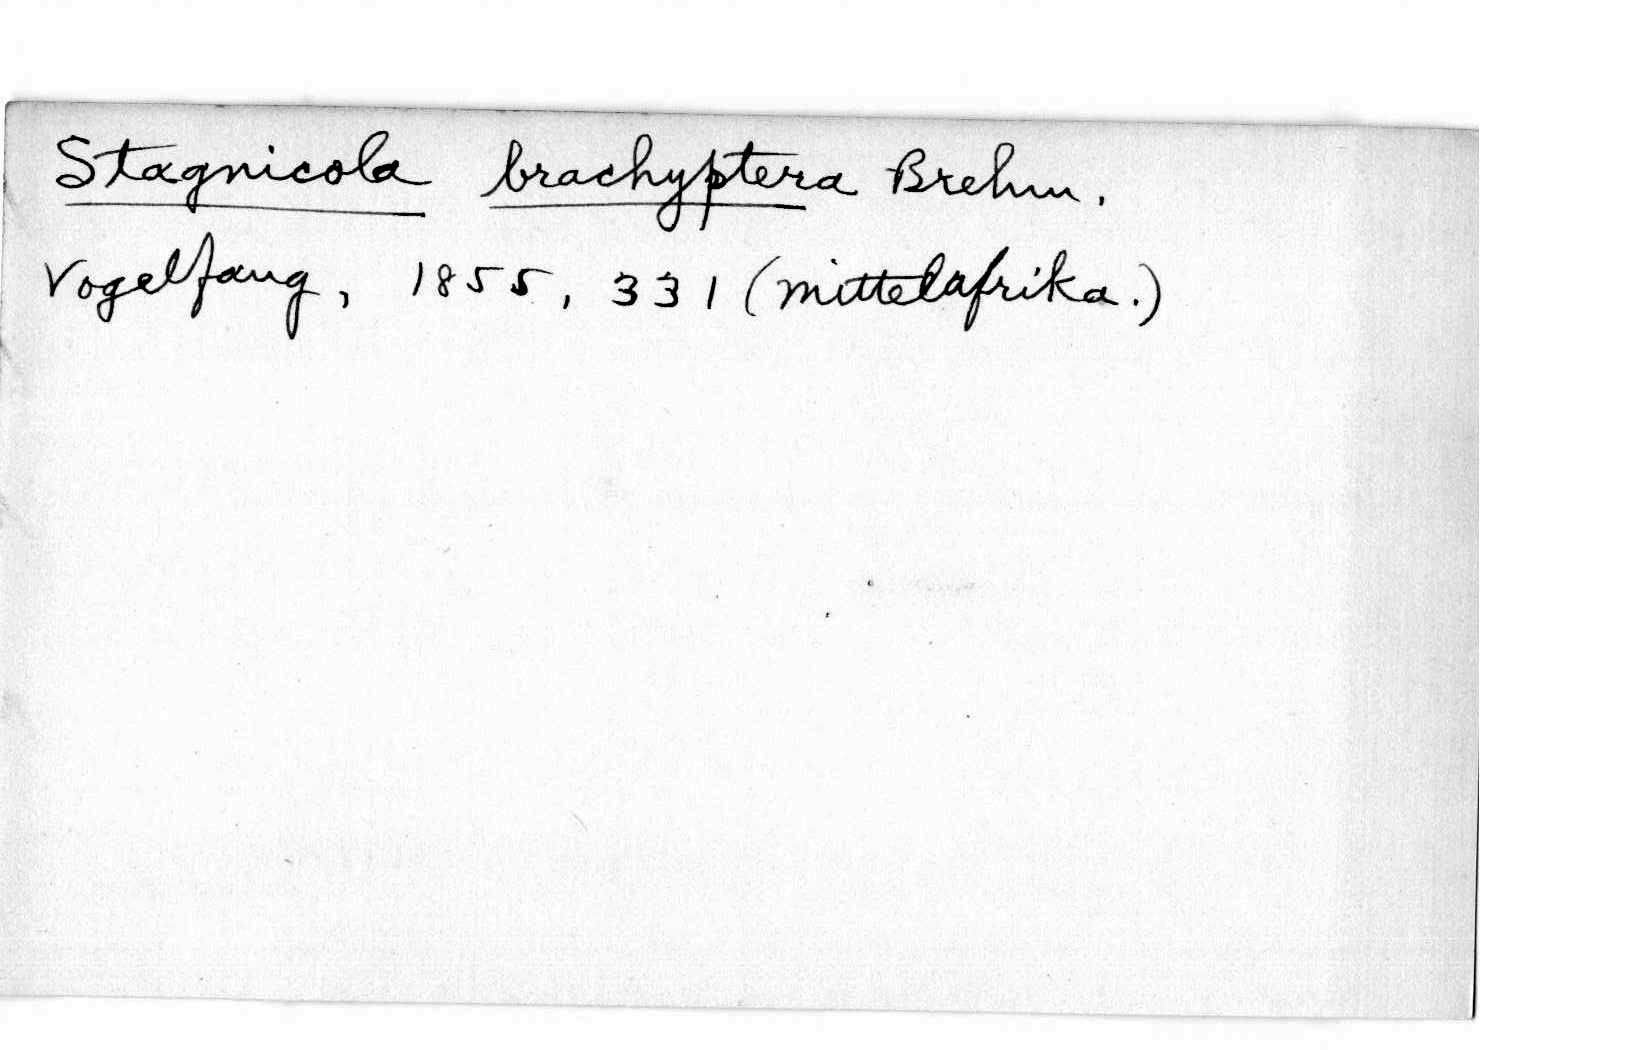 Stagnicola brachyptera Brehm.
Vogelfang, 1855, 331 (mittelafrika.)